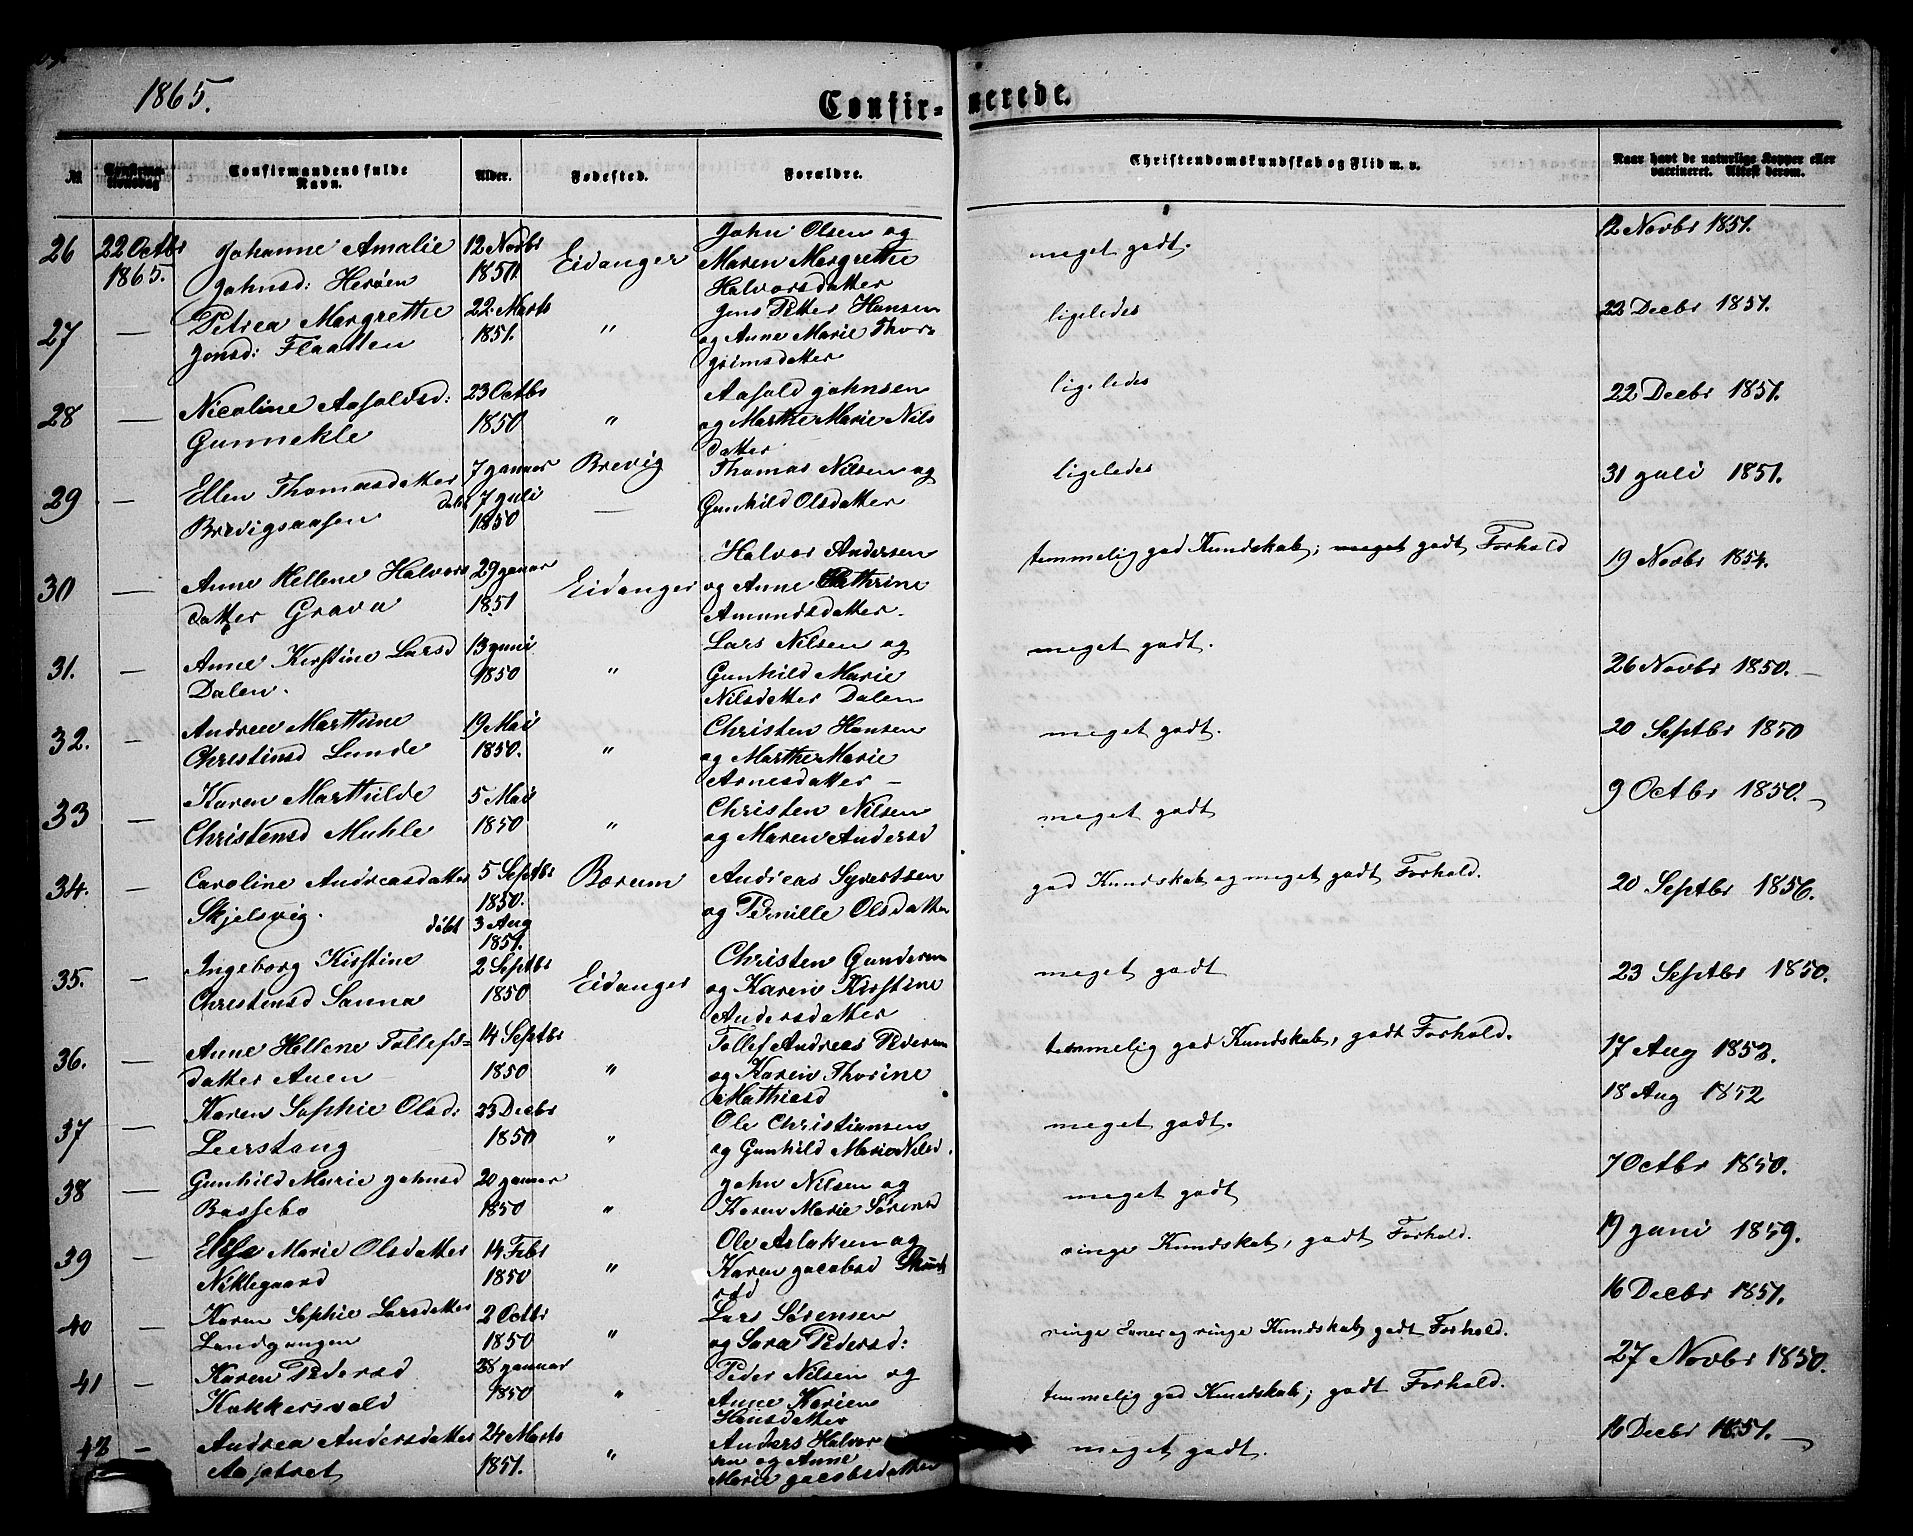 1865.
Confir- merede.
№ Confirma- tionsdag Confirmandens fulde Navn. Alder. Fødested. Forældre. Christendomskundskab og Flid m. v. Naar havt de naturlige Kopper eller vaccineret. Attest derom.
26 22 Octbr Johanne Amalie 12 Novbr Eidanger John Olsen og meget godt. 12 Novbr 1851.
1865. Johnsd: Herøen 1850. Maren Margrethe
Halvorsdatter
27 — Petrea Margrethe 22 Marts " Jens Petter Hansen ligeledes 22 Decbr 1851.
Jensd: Flaatten 1851. og Anne Marie Thor-
grimsdatter
28 — Nicoline Aasoldsd: 23 Octbr " Aasold Johnsen ligeledes 22 Decbr 1851.
Gunnekle 1850 og Marthe Marie Nils
datter
29 — Ellen Thomasdatter 7 Januar Brevig Thomas Nilsen og ligeledes 31 Juli 1851.
Brevigsaasen døbt 7 Juli — Gunhild Olsdatter
1850
30 — Anne Hellene Halvors 29 Januar Eidanger Halvor Andersen temmelig god Kundskab; meget godt Forhold 19 Novbr 1854.
datter Grava 1851 og Anne Cathrine
Amundsdatter.
31. — Anne Kirstine Larsd 13 Juni " Lars Nilsen og meget godt. 26 Novbr 1850. —
Dalen. 1850 Gunhild Marie
Nilsdatter Dalen
32. — Andrea Marthine 19 Mai " Christen Hansen meget godt. 20 Septbr 1850
Christensd Lunde 1850. og Marthe Marie
Arnesdatter —
33 — Karen Mathilde 5 Mai " Christen Nilsen meget godt 9 Octbr 1850. —
Christensd Muhle 1850 og Maren Andersd
34. — Caroline Andreasdatter 5 Septbr Bærum Andreas Syvertsen god Kundskab og meget godt Forhold. 20 Septbr 1856.
Skjelsvig. 1850. og Pernille Olsdatter
døbt 3 Aug
1851.
35. — Ingeborg Kirstine 2 Septbr Eidanger Christen Gundersen meget godt 23 Septbr 1850.
Christensd Sanna 1850 og Karen Kirstine
Andersdatter
36. — Anne Hellene Tollefs- 14 Septbr " Tollef Andreas Pedersen temmelig god Kundskab, godt Forhold. 17 Aug 1852.
datter Auen 1850 og Karen Thorine
Mathiesd
37 — Karen Sophie Olsd: 23 Decbr " Ole Christiansen meget godt. 18 Aug 1852
Leerstang 1850 og Gunhild Marie Nilsd.
38 — Gunhild Marie Johnsd 20 Januar " John Nilsen og meget godt 7 Octbr 1850.
Bassebo 1850 Karen Marie Sørensd
39 — Else Marie Olsdatter 14 Febr " Ole Aslaksen og ringe Kundskab, godt Forhold. 19 Juni 1859.
Niklegaard 1850 Karen Jacobsd
40 — Karen Sophie Larsdatter 2 Octbr " Lars Sørensen ringe Evner og ringe Kundskab, godt Forhold. 16 Decbr 1851.
Landgangen 1850 og Sara Pedersd:
41 — Karen Pedersd 28 Januar " Peder Nilsen og temmelig god Kundskab; godt Forhold. 27 Novbr 1850.
Kokkersvold 1850 Anne Karine
Hansdatter
42 — Andrea Andersdatter 24 Marts " Anders Halvor meget godt. 16 Decbr 1851. —
Aastret 1851. sen og Anne
Marie Jacobsdatter